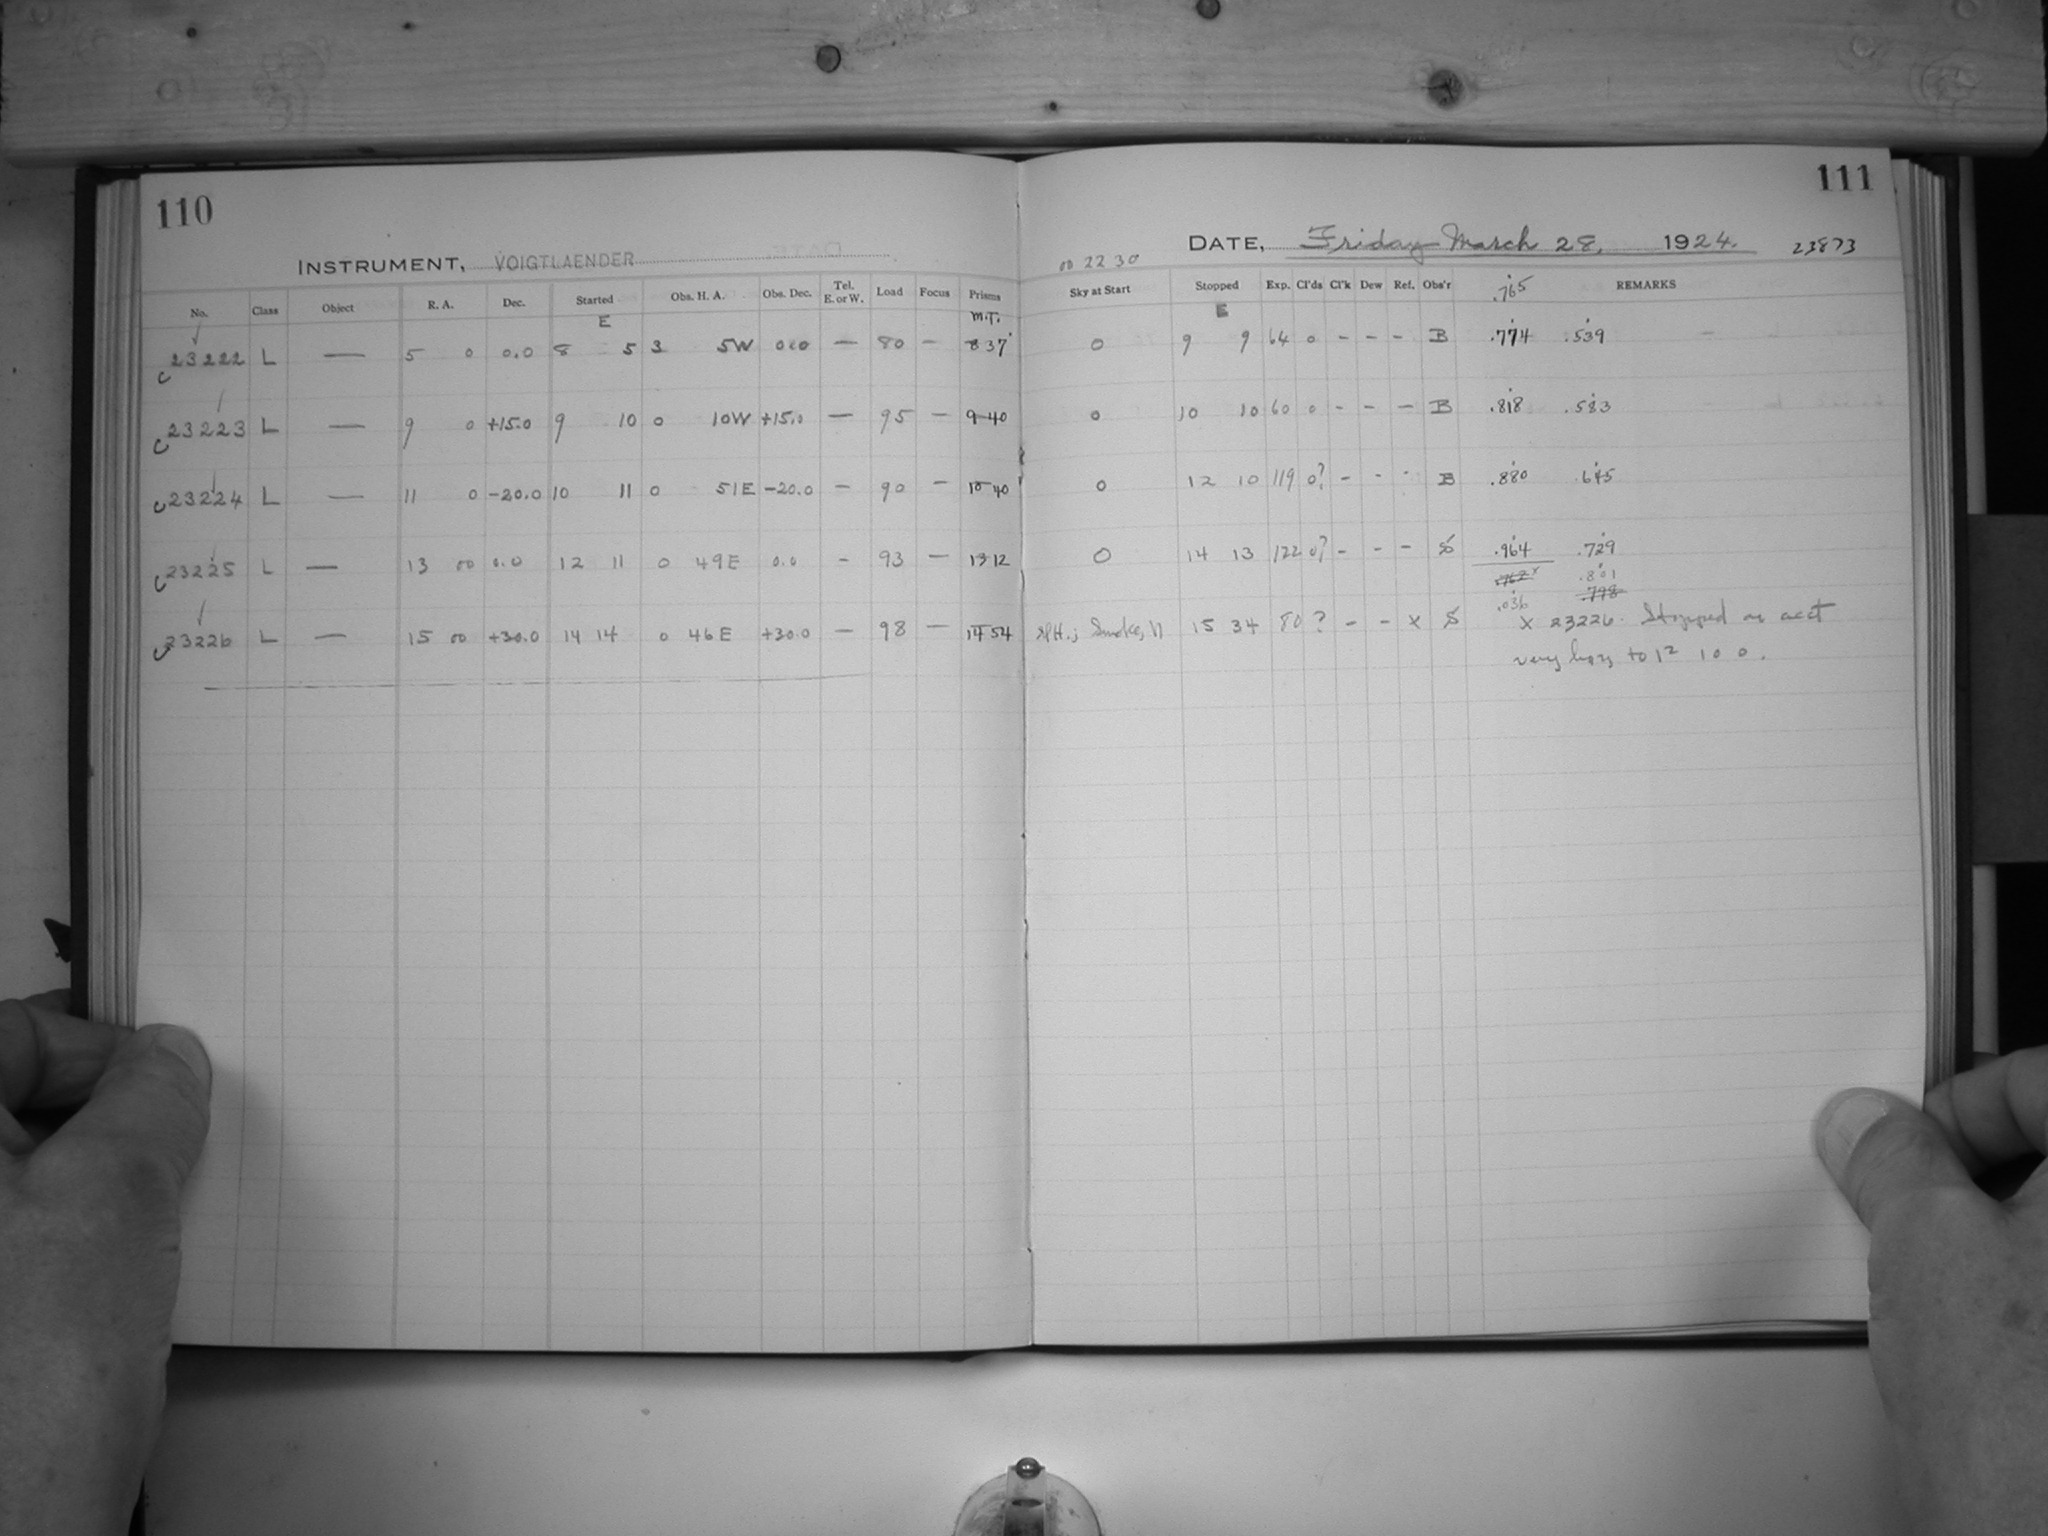 110
INSTRUMENT, VOIGTLAENDER
No. Class Object R. A. Dec. Started Obs. H. A. Obs. Dec. Tel. E. or W. Load Focus Prisms
E M.T.
23222 L — 5 0 0.0 8 5 3 5W 0.0 — 80 — 8 37
23223 L — 9 0 +15.0 9 10 0 10W +15.0 — 95 — 9 40
23224 L — 11 0 -20.0 10 11 0 51E -20.0 — 90 — 10 40
23225 L — 13 00 0.0 12 11 0 49E 0.0 - 93 — 13 12
23226 L — 15 00 +30.0 14 14 0 46E +30.0 — 98 — 14 54
111
DATE, Friday March 28, 1924. 23873
00 22 30
Sky at Start Stopped Exp. Cl'ds Cl'k Dew Ref. Obs'r .765 REMARKS
E
0 9 9 64 0 - - - B .774 .539
0 10 10 60 0 - - - B .818 .583
0 12 10 119 0? - - - B .880 .645
0 14 13 122 0? - - - S .964 .729
.801
.036
Smoke, 15 34 80 ? - - x S x 23226. Stopped on acct
very hazy to 12 10 0.